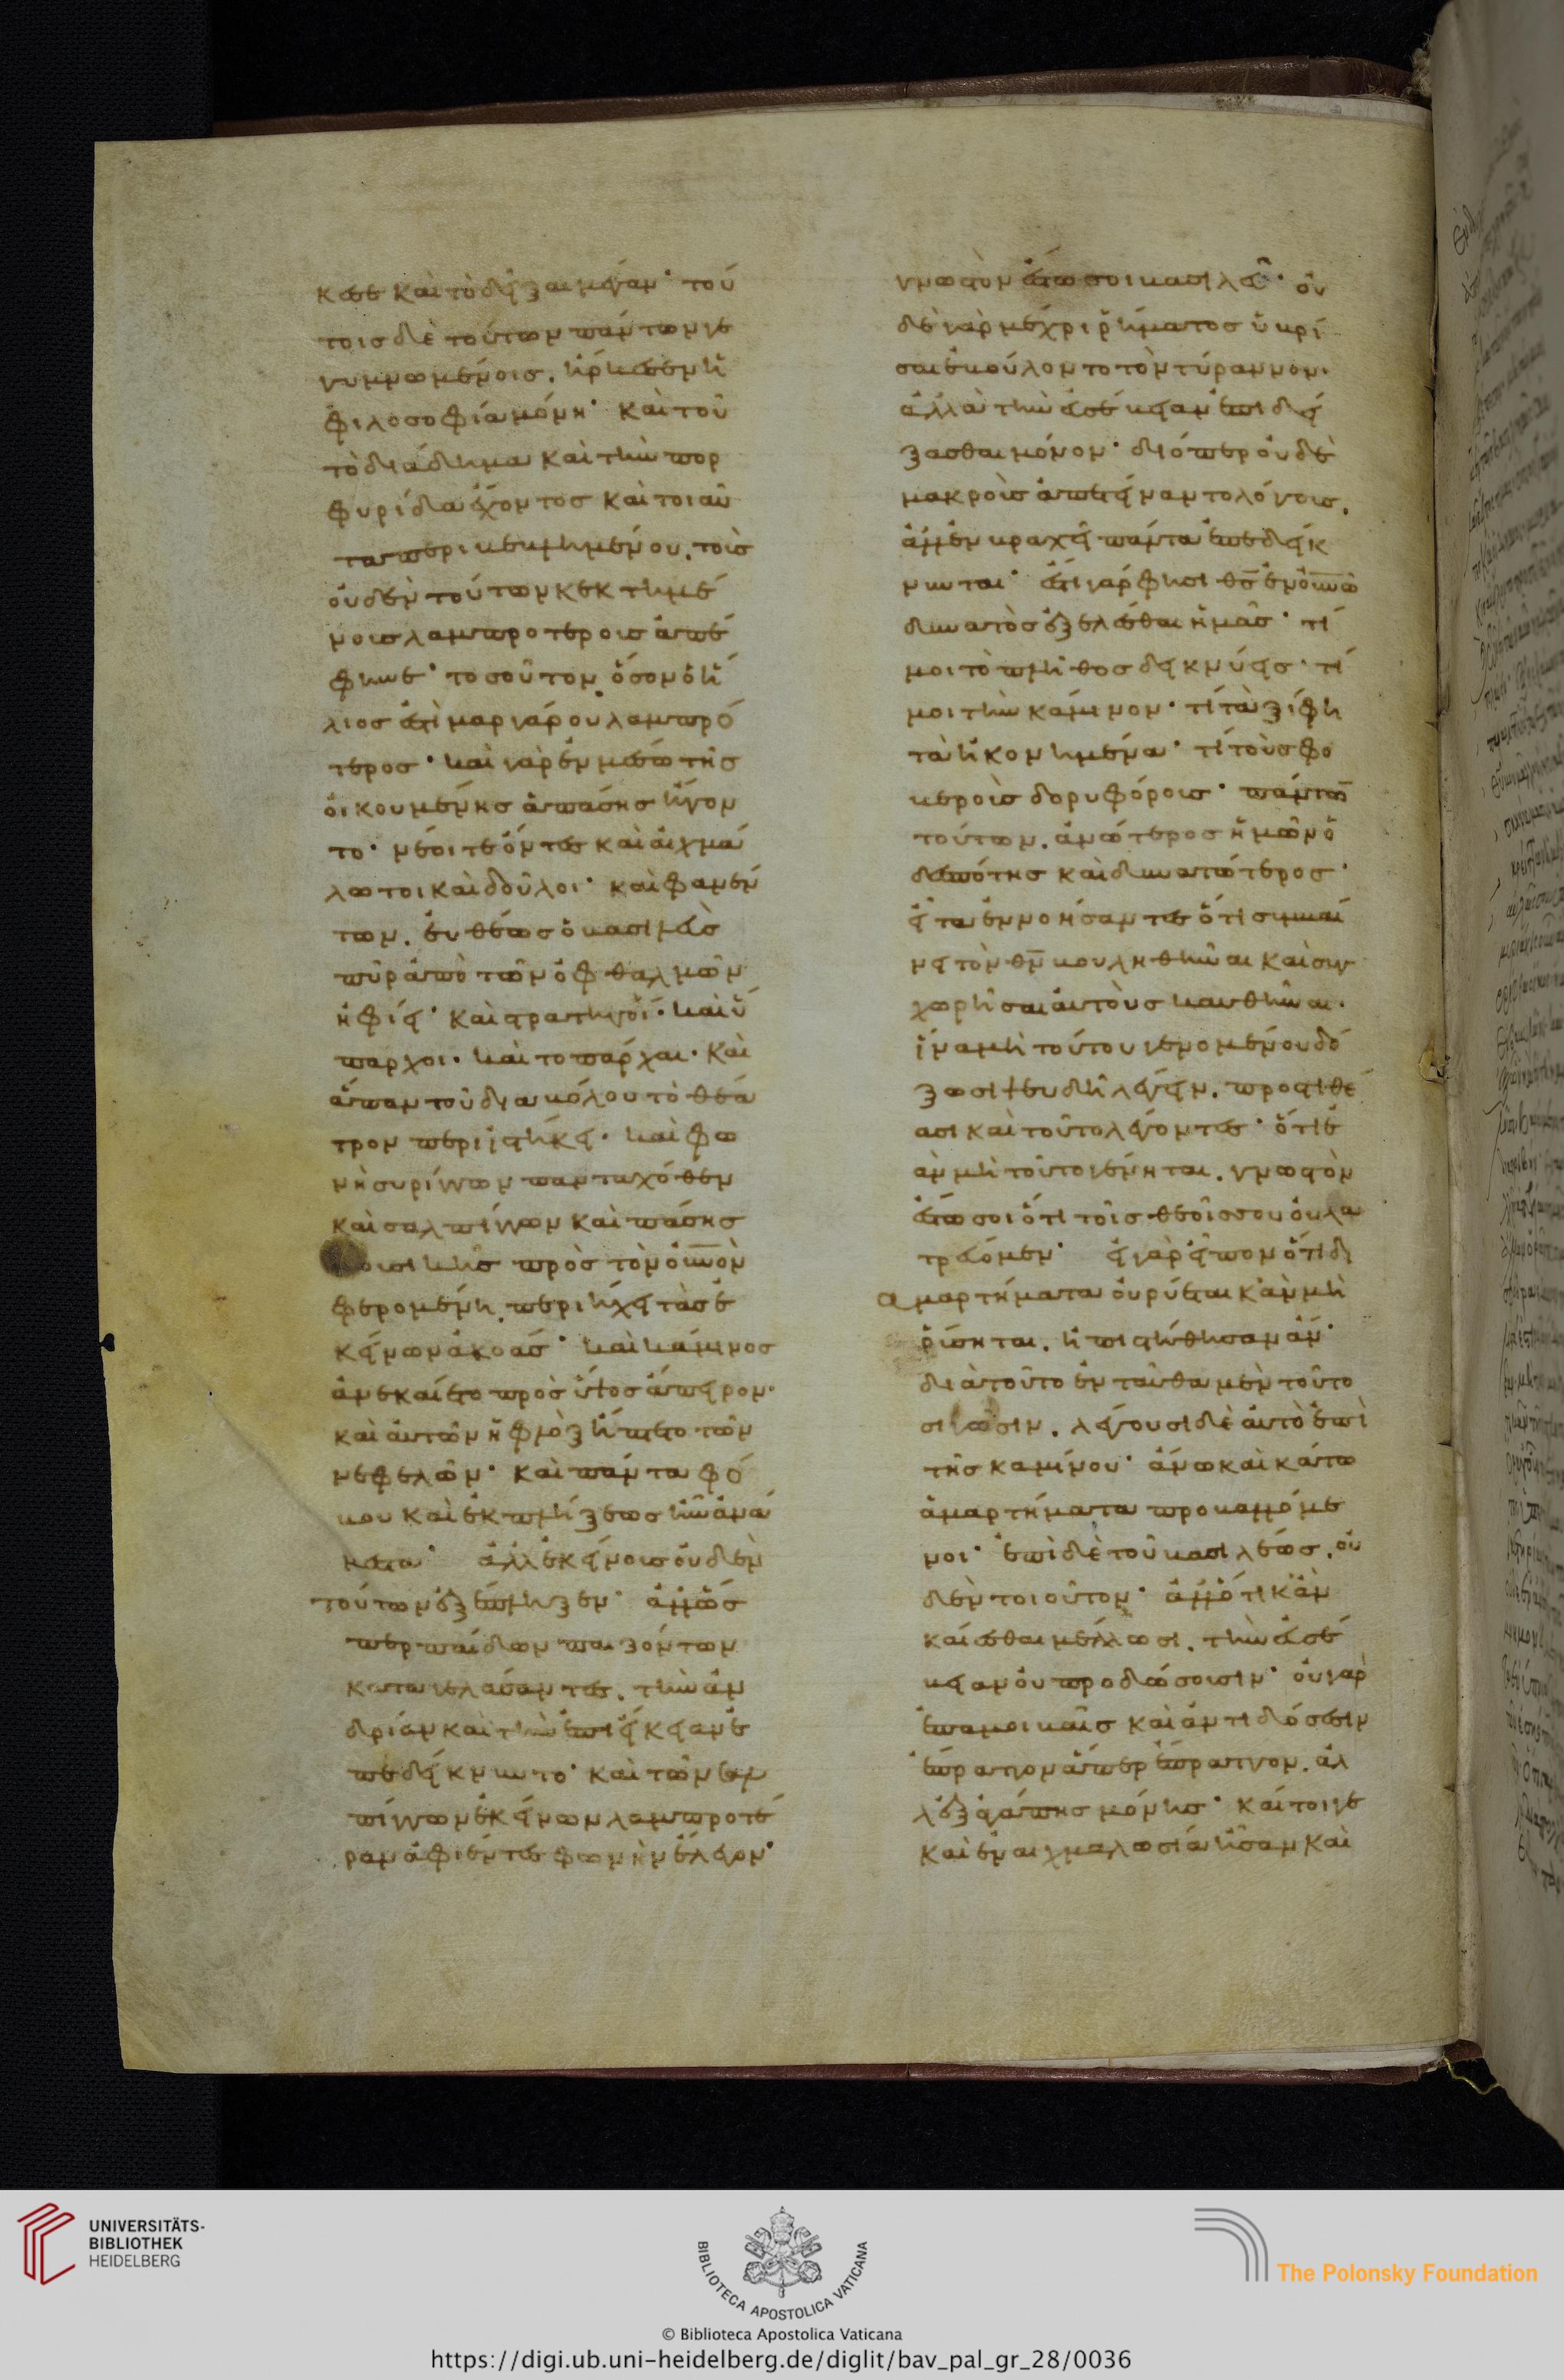 κεσε καὶ τὸ δεῖξαι μέγαν· τού
τοις δὲ τούτων πάντων γε
γυμνωμένοις. ἤρκεσεν ἡ
φιλοσοφία μόνη· καὶ τοῦ
τὸ διάδημα καὶ τὴν πορ
φυρίδα ἔχοντος καὶ τοιαῦ
τα περιβεβλημένου. τοὺς
οὐδὲν τούτων κεκτημέ
νους λαμπροτέρους ἀπέ
φηνε· τοσοῦτον ὅσον ὁ ἥ
λιος ἐστὶ μαργάρου λαμπρό
τερος· καὶ γὰρ ἐν μέσω τῆς
οἰκουμένης ἁπάσης ἤγον
το· νέοι τε ὄντες καὶ αἰχμά
λωτοι καὶ δοῦλοι· καὶ φανέν
των. εὐθέως ὁ βασιλεὺς
πῦρ ἀπὸ τῶν ὀφθαλμῶν
ἠφίει· καὶ στρατηγοί· καὶ ὕ
παρχοι· καὶ τοπάρχαι· καὶ
ἅπαν τοῦ διαβόλου τὸ θέα
τρον περιϊστήκει· καὶ φω
νὴ συρίγγων πανταχόθεν
καὶ σαλπίγγων καὶ πάσης
μουσικῆς πρὸς τὸν οὐνὸν
φερομένη. περιήχει τὰς ἐ
κείνων ἀκοάς· καὶ κάμινος
ἀνεκαίετο πρὸς ὕψος ἄπειρον·
καὶ αὐτῶν ἡ φλὸξ ἥπτετο τῶν
νεφελῶν· καὶ πάντα φό
βου καὶ ἐκπλήξεως ἦν ἀνά
μεστα· ἀλλ ἐκείνους οὐδὲν
τούτων ἐξέπληξεν· ἀλλ ὥσ
περ παίδων παιζόντων
καταγελάσαντες. τὴν ἀν
δρίαν καὶ τὴν ἐπιείκειαν ἐ
πεδείκνυντο· καὶ τῶν σαλ
πίγγων ἐκείνων λαμπροτέ
ραν ἀφιέντες φωνὴν ἔλεγον·
γνωστὸν ἔστω σοι βασιλεῦ· οὐ
δὲ γὰρ μέχρι ῥήματος ὑβρί
σαι ἐβούλοντο τὸν τύραννον·
ἀλλὰ τὴν εὐσέβειαν ἐπιδεί
ξασθαι μόνον· διόπερ οὐδὲ
μακροὺς ἀπέτειναν τοὺς λόγους.
ἀλλ ἐν βραχεῖ πάντα ἐπεδείκ
νυνται· ἔστι γάρ φησι θς ἐν οὐνῶ
δυνατὸς ἐξελέσθαι ἡμᾶς· τί
μοι τὸ πλῆθος δεικνύεις· τί
μοι τὴν κάμινον· τί τὰ ξίφη
τὰ ἠκονημένα· τί τοὺς φο
βεροὺς δορυφόρους· πάντων
τούτων. ἀνώτερος ἡμῶν ὁ
δεσπότης καὶ δυνατώτερος·
εἶτα ἐννοήσαντες ὅτι συμβαί
νει τὸν θν βουληθῆναι καὶ συγ
χωρῆσαι αὐτοὺς καυθῆναι·
ἵνα μὴ τούτου γενομένου δό
ξωσι ψευδῆ λέγειν. προστιθέ
ασι καὶ τοῦτο λέγοντες· ὅτι ἐ
ὰν μὴ τοῦτο γένηται. γνωστὸν
ἔστω σοι ὅτι τοῖς θεοῖς σου οὐ λα
τρεύομεν· εἰ γὰρ εἶπον ὅτι δι
αμαρτήματα οὐ ρύεται κἂν μὴ
ῥύσηται. ἠπιστήθησαν ἄν·
διὰ τοῦτο ἐνταῦθα μὲν τοῦτο
σιγῶσιν. λέγουσι δὲ αὐτὸ ἐπὶ
τῆς καμίνου· ἄνω καὶ κάτω
ἁμαρτήματα προβαλλόμε
νοι· ἐπὶ δὲ τοῦ βασιλέως. οὐ
δὲν τοιοῦτον· ἀλλ ὅτι κἂν
καίεσθαι μέλλωσι. τὴν εὐσέ
βειαν οὐ προδώσουσιν· οὐ γὰρ
ἐπ ἀμοιβαῖς καὶ ἀντιδόσεσιν
ἔπραττον ἅπερ ἔπραττον. ἀλ
λ ἐξ ἀγάπης μόνης· καίτοιγε
καὶ ἐν αἰχμαλωσία ἦσαν καὶ
UNIVERSITÄTS-
BIBLIOTHEK
HEIDELBERG
BIBLIOTECA APOSTOLICA VATICANA
The Polonsky Foundation
© Biblioteca Apostolica Vaticana
https://digi.ub.uni-heidelberg.de/diglit/bav_pal_gr_28/0036